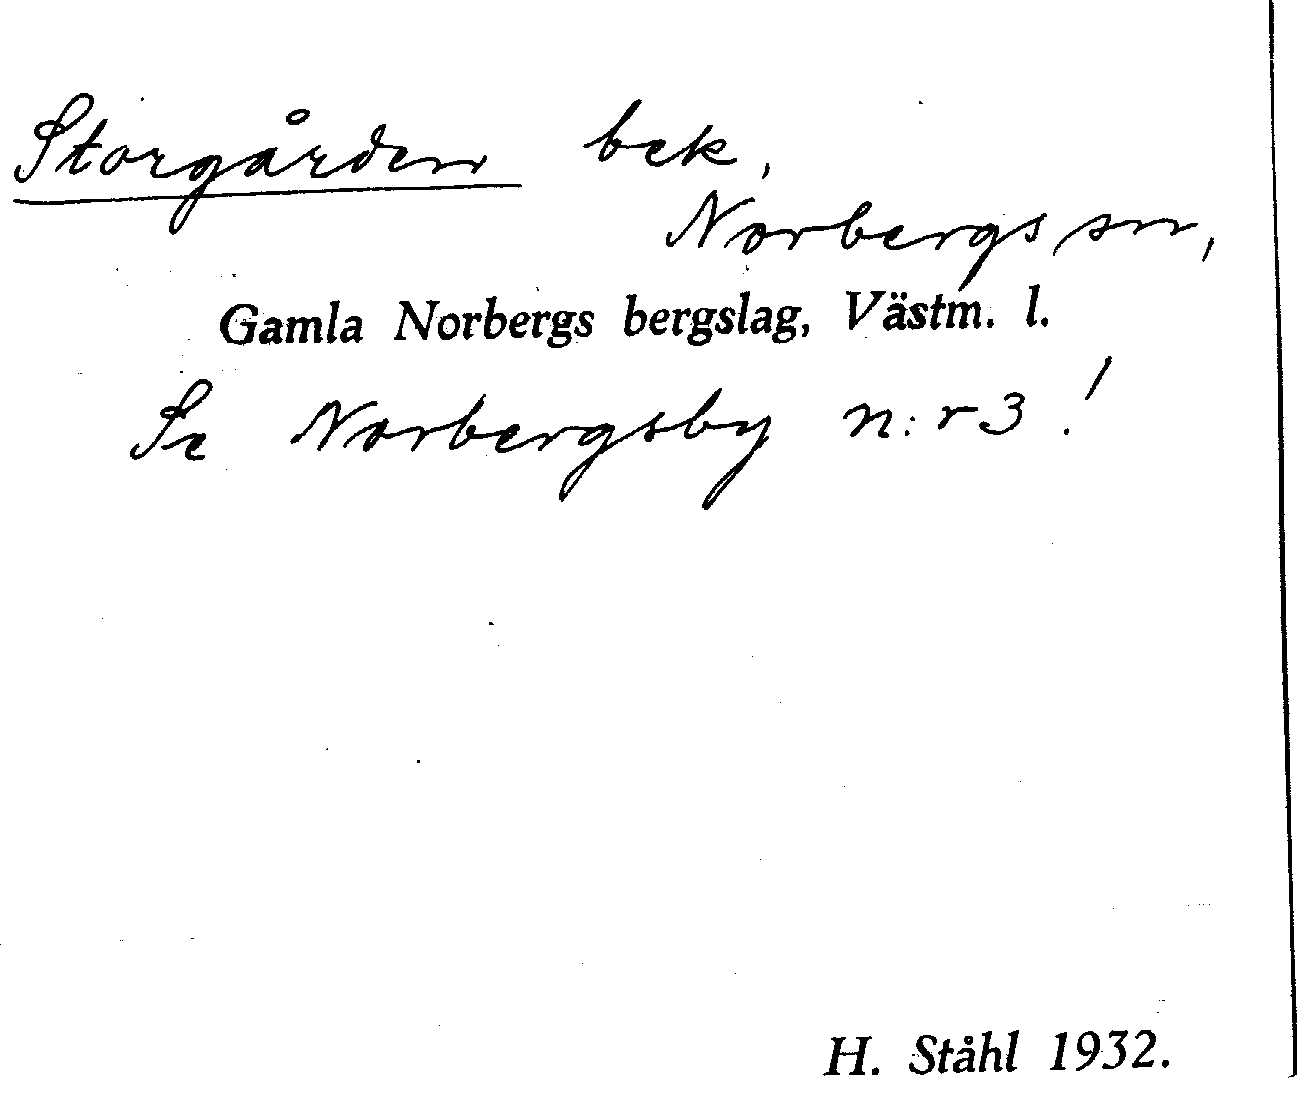 Storgården bek,
Norbergs sn,
Gamla Norbergs bergslag, Västm. l.
Se Norbergsby n:r 3!
H. Ståhl 1932.